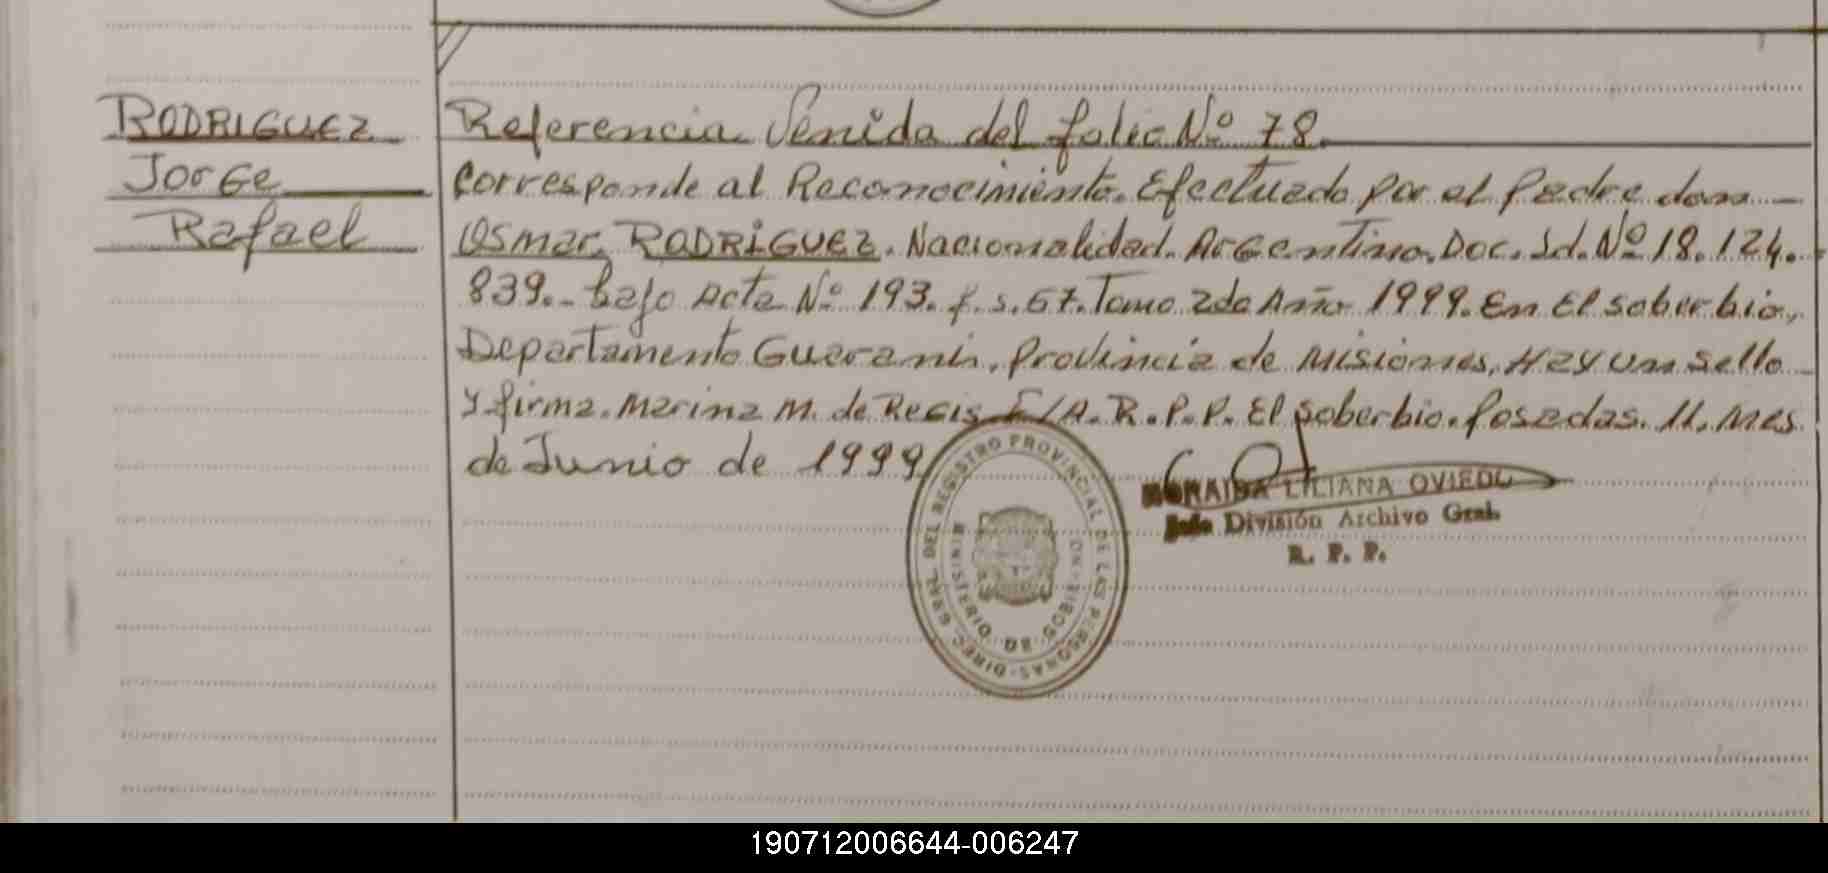 RODRIGUEZ
Jorge
Rafael
Referencia Venida del folio Nº 78.
Corresponde al Reconocimiento. Efectuado por el padre don
Osmar RODRIGUEZ. Nacionalidad. Argentino. Doc. Id. Nº 18.124.
839.- bajo Acta Nº 193. f.s. 67. Tomo 2do Año 1999. En El soberbio,
Departamento Guarani, Provincia de Misiones, Hay un sello
y firma. Marina M. de Regis E/A.R.P.P. El soberbio. Posadas. 11. Mes
de Junio de 1999
DIREC. GRAL. DEL REGISTRO PROVINCIAL DE LAS PERSONAS
MINISTERIO DE GOBIERNO
LILIANA OVIEDO
Jefe División Archivo Gral.
R. P. P.
190712006644-006247